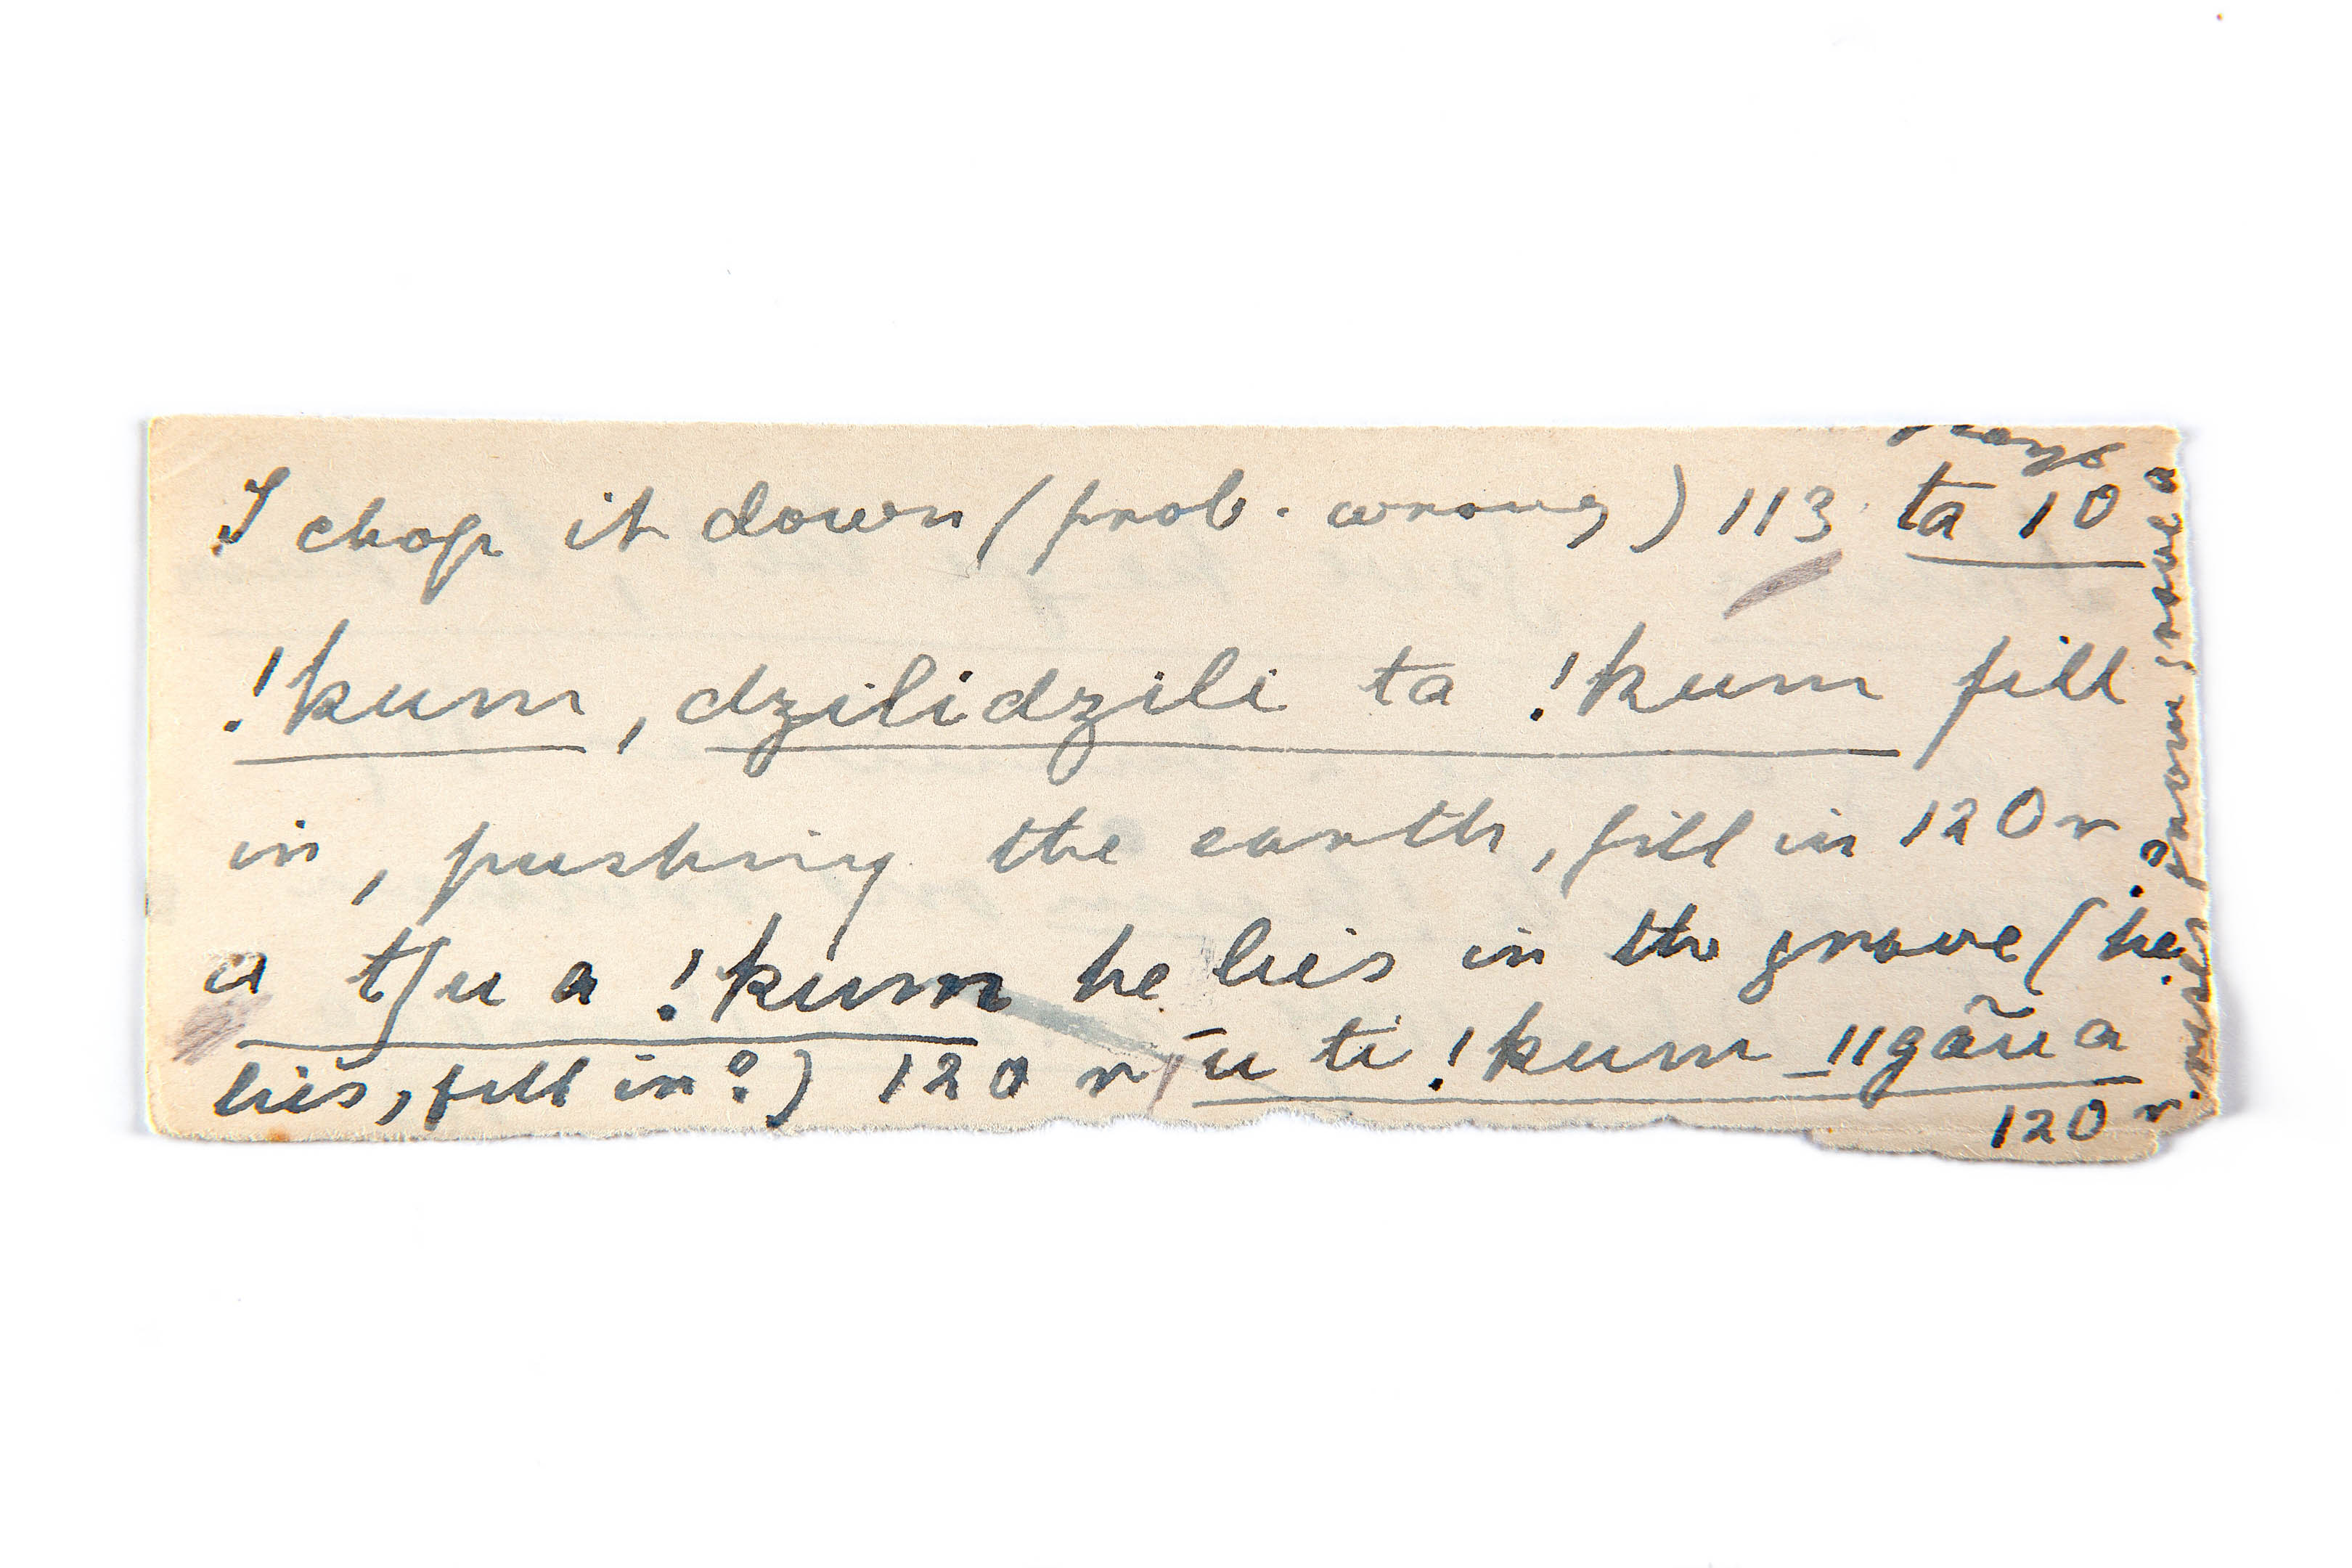 I chop it down (prob. wrong) 113 ta 10
!kum, dzilidzili ta !kum fill
in, pushing the earth, fill in 120 r.
a tʃu a !kum he lies in the grave (he
lies, fill in?) 120 r, ū ti !kum ǁgãũa
120 r.
a